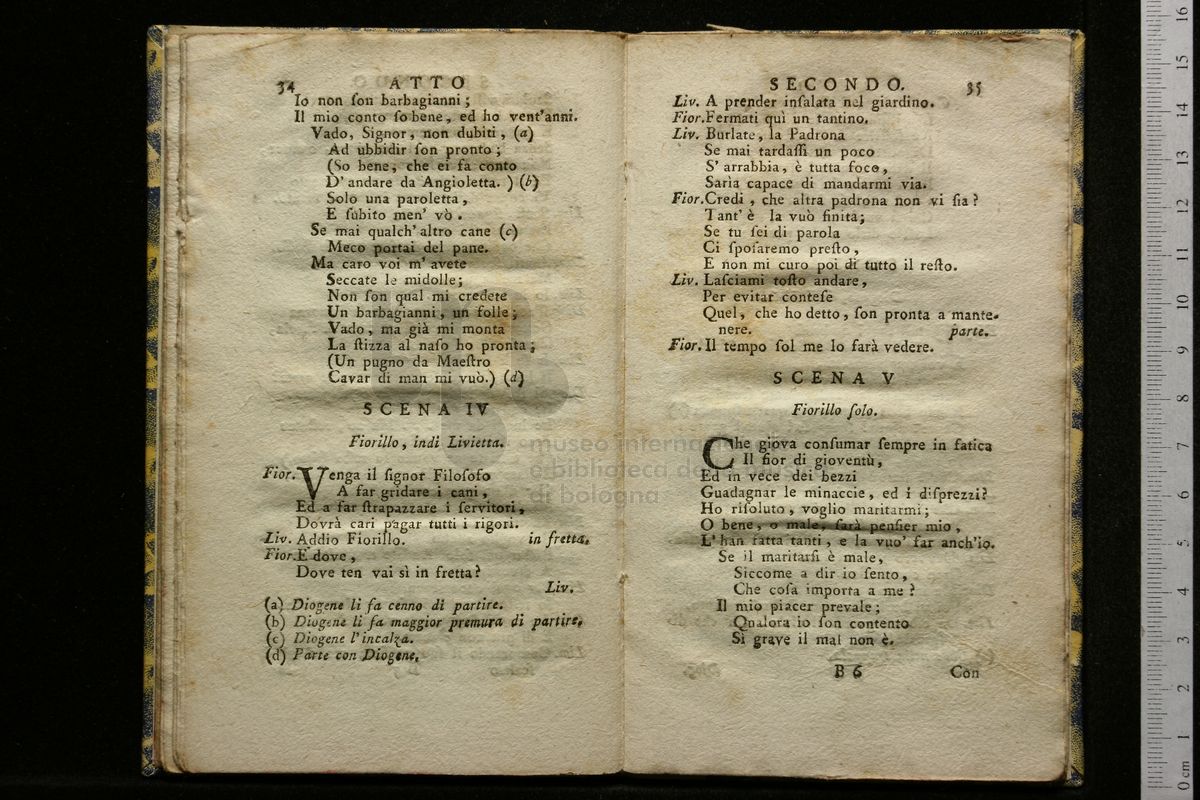 34 ATTO
Io non ſon barbagianni;
Il mio conto ſo bene, ed ho vent'anni.
Vado, Signor, non dubiti, (a)
Ad ubbidir ſon pronto;
(So bene, che ei fa conto
D'andare da Angioletta.) (b)
Solo una paroletta,
E ſubito men' vò.
Se mai qualch'altro cane (c)
Meco portai del pane.
Ma caro voi m'avete
Seccate le midolle;
Non ſon qual mi credete
Un barbagianni, un folle;
Vado, ma già mi monta
La ſtizza al naſo ho pronta;
(Un pugno da Maeſtro
Cavar di man mi vuò.) (d)
SCENA IV
Fiorillo, indi Livietta.
Fior. Venga il ſignor Filoſofo
A far gridare i cani,
Ed a far ſtrapazzare i ſervitori,
Dovrà cari pagar tutti i rigori.
Liv. Addio Fiorillo. in fretta.
Fior. E dove,
Dove ten vai sì in fretta?
Liv.
(a) Diogene li fa cenno di partire.
(b) Diogene li fa maggior premura di partire.
(c) Diogene l'incalza.
(d) Parte con Diogene.
SECONDO. 35
Liv. A prender inſalata nel giardino.
Fior. Fermati quì un tantino.
Liv. Burlate, la Padrona
Se mai tardaſſi un poco
S'arrabbia, è tutta foco,
Sarìa capace di mandarmi via.
Fior. Credi, che altra padrona non vi ſia?
Tant'è la vuò finita;
Se tu ſei di parola
Ci ſpoſaremo preſto,
E non mi curo poi di tutto il reſto.
Liv. Laſciami toſto andare,
Per evitar conteſe
Quel, che ho detto, ſon pronta a mante-
nere. parte.
Fior. Il tempo ſol me lo farà vedere.
SCENA V
Fiorillo ſolo.
Che giova conſumar ſempre in fatica
Il fior di gioventù,
Ed in vece dei bezzi
Guadagnar le minaccie, ed i diſprezzi?
Ho riſoluto, voglio maritarmi;
O bene, o male, ſarà penſier mio,
L'han fatta tanti, e la vuo' far anch'io.
Se il maritarſi è male,
Siccome a dir io ſento,
Che coſa importa a me?
Il mio piacer prevale;
Qualora io ſon contento
Sì grave il mal non è.
B 6 Con
museo interna
e biblioteca de
di bologna
0 cm 1 2 3 4 5 6 7 8 9 10 11 12 13 14 15 16